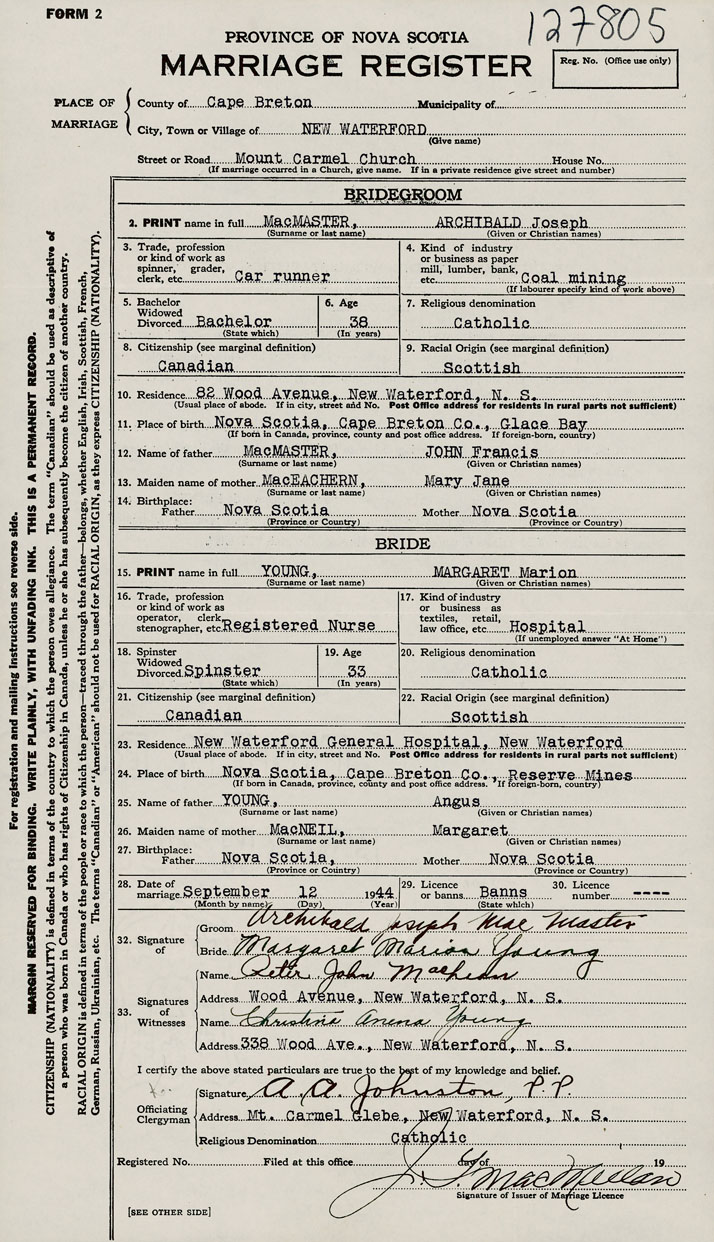 FORM 2
127805
PROVINCE OF NOVA SCOTIA
MARRIAGE REGISTER
Reg. No. (Office use only)
PLACE OF MARRIAGE
County of Cape Breton Municipality of
City, Town or Village of NEW WATERFORD
(Give name)
Street or Road Mount Carmel Church House No.
(If marriage occurred in a Church, give name. If in a private residence give street and number)
BRIDEGROOM
2. PRINT name in full MacMASTER, ARCHIBALD Joseph
(Surname or last name) (Given or Christian names)
3. Trade, profession or kind of work as spinner, grader, clerk, etc. Car runner
4. Kind of industry or business as paper mill, lumber, bank, etc. Coal mining
(If labourer specify kind of work above)
5. Bachelor Widowed Divorced Bachelor
(State which)
6. Age 38
(In years)
7. Religious denomination
Catholic
8. Citizenship (see marginal definition)
Canadian
9. Racial Origin (see marginal definition)
Scottish
10. Residence 82 Wood Avenue, New Waterford, N. S.
(Usual place of abode. If in city, street and No. Post Office address for residents in rural parts not sufficient)
11. Place of birth Nova Scotia, Cape Breton Co., Glace Bay
(If born in Canada, province, county and post office address. If foreign-born, country)
12. Name of father MacMASTER, JOHN Francis
(Surname or last name) (Given or Christian names)
13. Maiden name of mother MacEACHERN, Mary Jane
(Surname or last name) (Given or Christian names)
14. Birthplace:
Father Nova Scotia Mother Nova Scotia
(Province or Country) (Province or Country)
BRIDE
15. PRINT name in full YOUNG, MARGARET Marion
(Surname or last name) (Given or Christian names)
16. Trade, profession or kind of work as operator, clerk, stenographer, etc. Registered Nurse
17. Kind of industry or business as textiles, retail, law office, etc. Hospital
(If unemployed answer "At Home")
18. Spinster Widowed Divorced Spinster
(State which)
19. Age 33
(In years)
20. Religious denomination
Catholic
21. Citizenship (see marginal definition)
Canadian
22. Racial Origin (see marginal definition)
Scottish
23. Residence New Waterford General Hospital, New Waterford
(Usual place of abode. If in city, street and No. Post Office address for residents in rural parts not sufficient)
24. Place of birth Nova Scotia, Cape Breton Co., Reserve Mines
(If born in Canada, province, county and post office address. If foreign-born, country)
25. Name of father YOUNG, Angus
(Surname or last name) (Given or Christian names)
26. Maiden name of mother MacNEIL, Margaret
(Surname or last name) (Given or Christian names)
27. Birthplace:
Father Nova Scotia, Mother Nova Scotia
(Province or Country) (Province or Country)
28. Date of marriage September 12 1944
(Month by name) (Day) (Year)
29. Licence or banns Banns
(State which)
30. Licence number ----
32. Signature of
Groom Archibald Joseph MacMaster
Bride Margaret Marion Young
33. Signatures of Witnesses
Name Peter John
Address Wood Avenue, New Waterford, N. S.
Name Christine Young
Address 338 Wood Ave., New Waterford, N. S.
I certify the above stated particulars are true to the best of my knowledge and belief.
Officiating Clergyman
Signature A. A. Johnston, P.P.
Address Mt. Carmel Glebe, New Waterford, N. S.
Religious Denomination Catholic
Registered No. Filed at this office day of 19
MacMillan
Signature of Issuer of Marriage Licence
[SEE OTHER SIDE]
For registration and mailing instructions see reverse side.
MARGIN RESERVED FOR BINDING. WRITE PLAINLY, WITH UNFADING INK. THIS IS A PERMANENT RECORD.
CITIZENSHIP (NATIONALITY) is defined in terms of the country to which the person owes allegiance. The term "Canadian" should be used as descriptive of
a person who was born in Canada or who has rights of Citizenship in Canada, unless he or she has subsequently become the citizen of another country.
RACIAL ORIGIN is defined in terms of the people or race to which the person—traced through the father—belongs, whether English, Irish, Scottish, French,
German, Russian, Ukrainian, etc. The terms "Canadian" or "American" should not be used for RACIAL ORIGIN, as they express CITIZENSHIP (NATIONALITY).